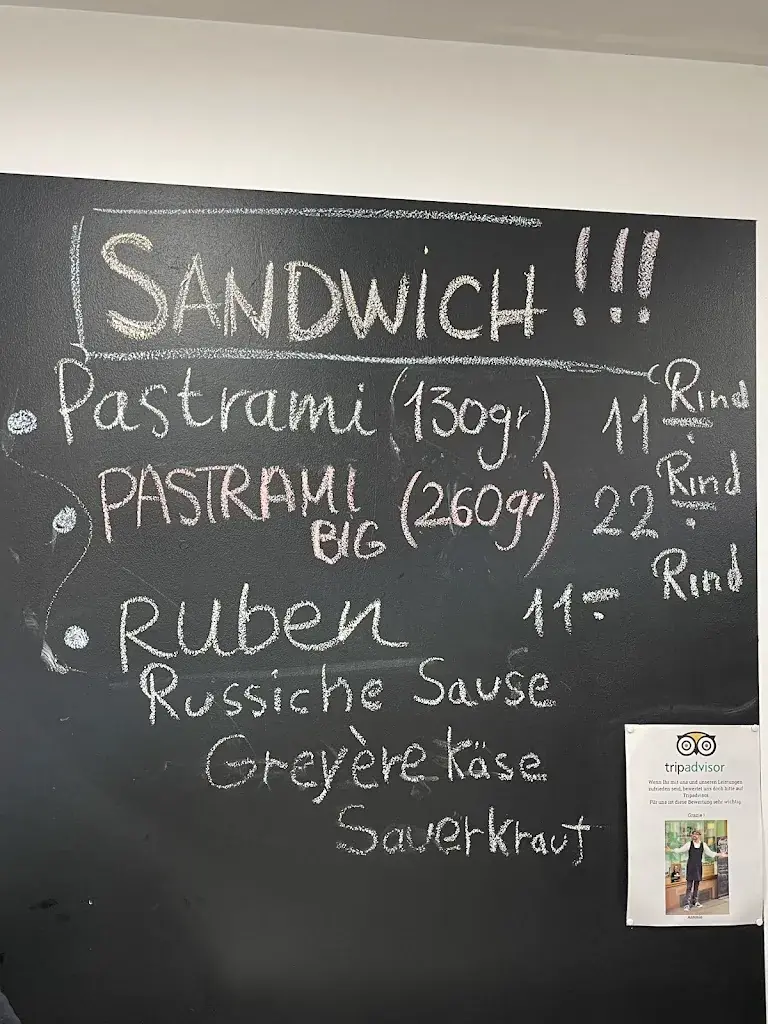 SANDWICH !!!
Pastrami (130gr) 11 Rind
PASTRAMI BIG (260gr) 22 Rind
Ruben 11.- Rind
Russiche Sause
Greyère käse
Sauerkraut
tripadvisor
Wenn Ihr mit uns und unseren Leistungen
zufrieden seid, bewertet uns doch bitte auf
Tripadvisor.
Für uns ist diese Bewertung sehr wichtig.
Grazie !